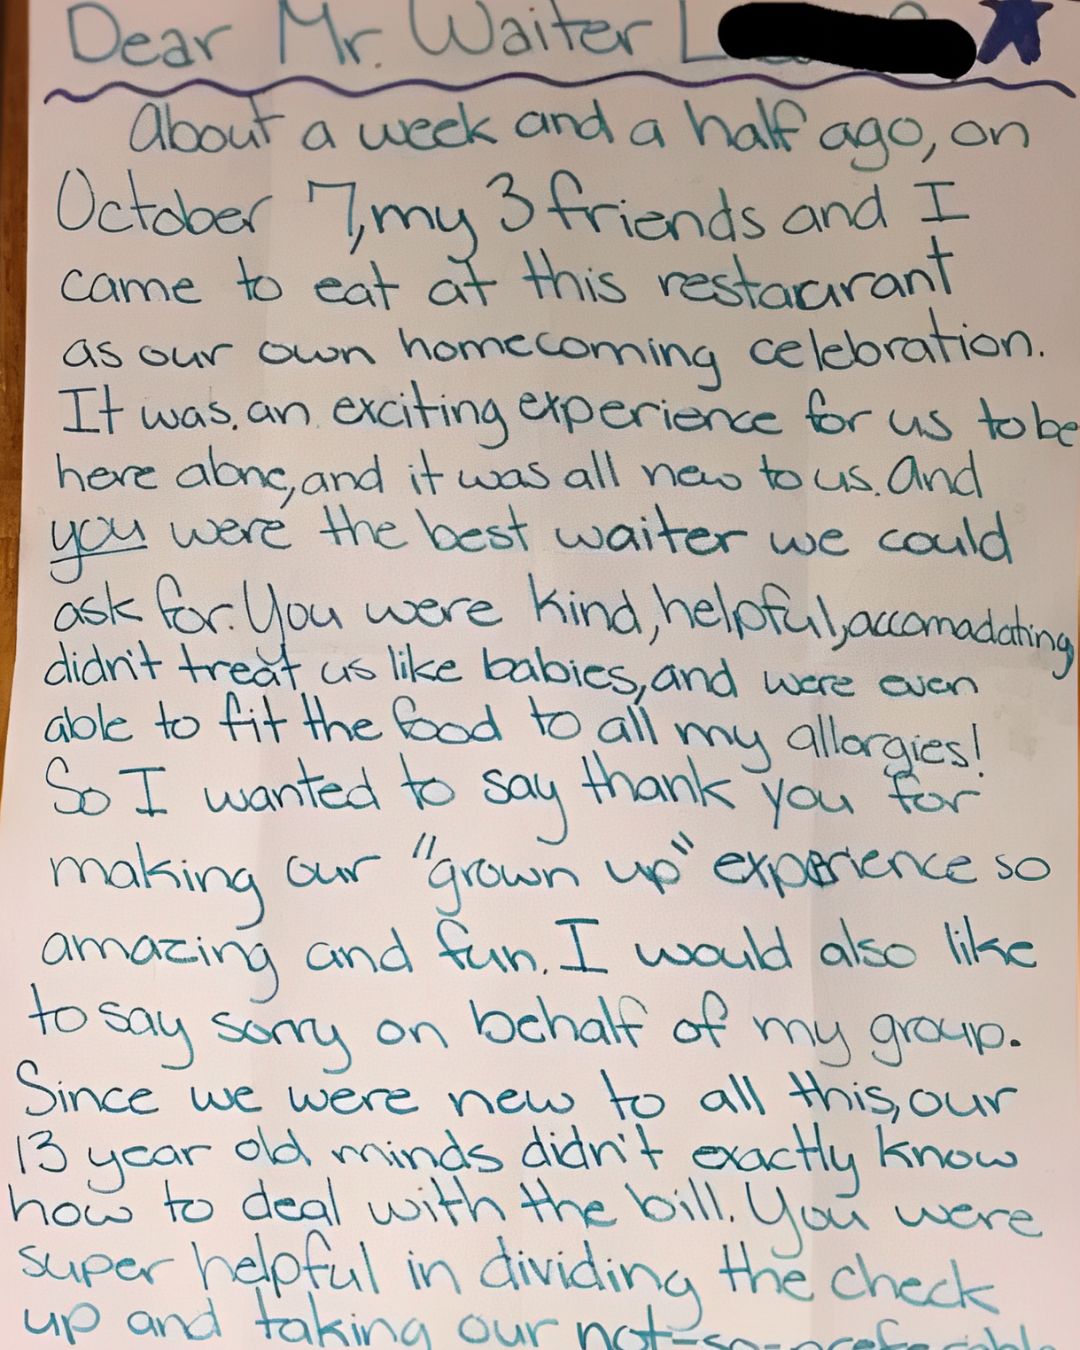 Dear Mr. Waiter L
About a week and a half ago, on
October 7, my 3 friends and I
came to eat at this restaurant
as our own homecoming celebration.
It was an exciting experience for us to be
here alone, and it was all new to us. And
you were the best waiter we could
ask for. You were kind, helpful, accomadating,
didn't treat us like babies, and were even
able to fit the food to all my allergies!
So I wanted to say thank you for
making our "grown up" experience so
amazing and fun. I would also like
to say sorry on behalf of my group.
Since we were new to all this, our
13 year old minds didn't exactly know
how to deal with the bill. You were
super helpful in dividing the check
up and taking our not-so-